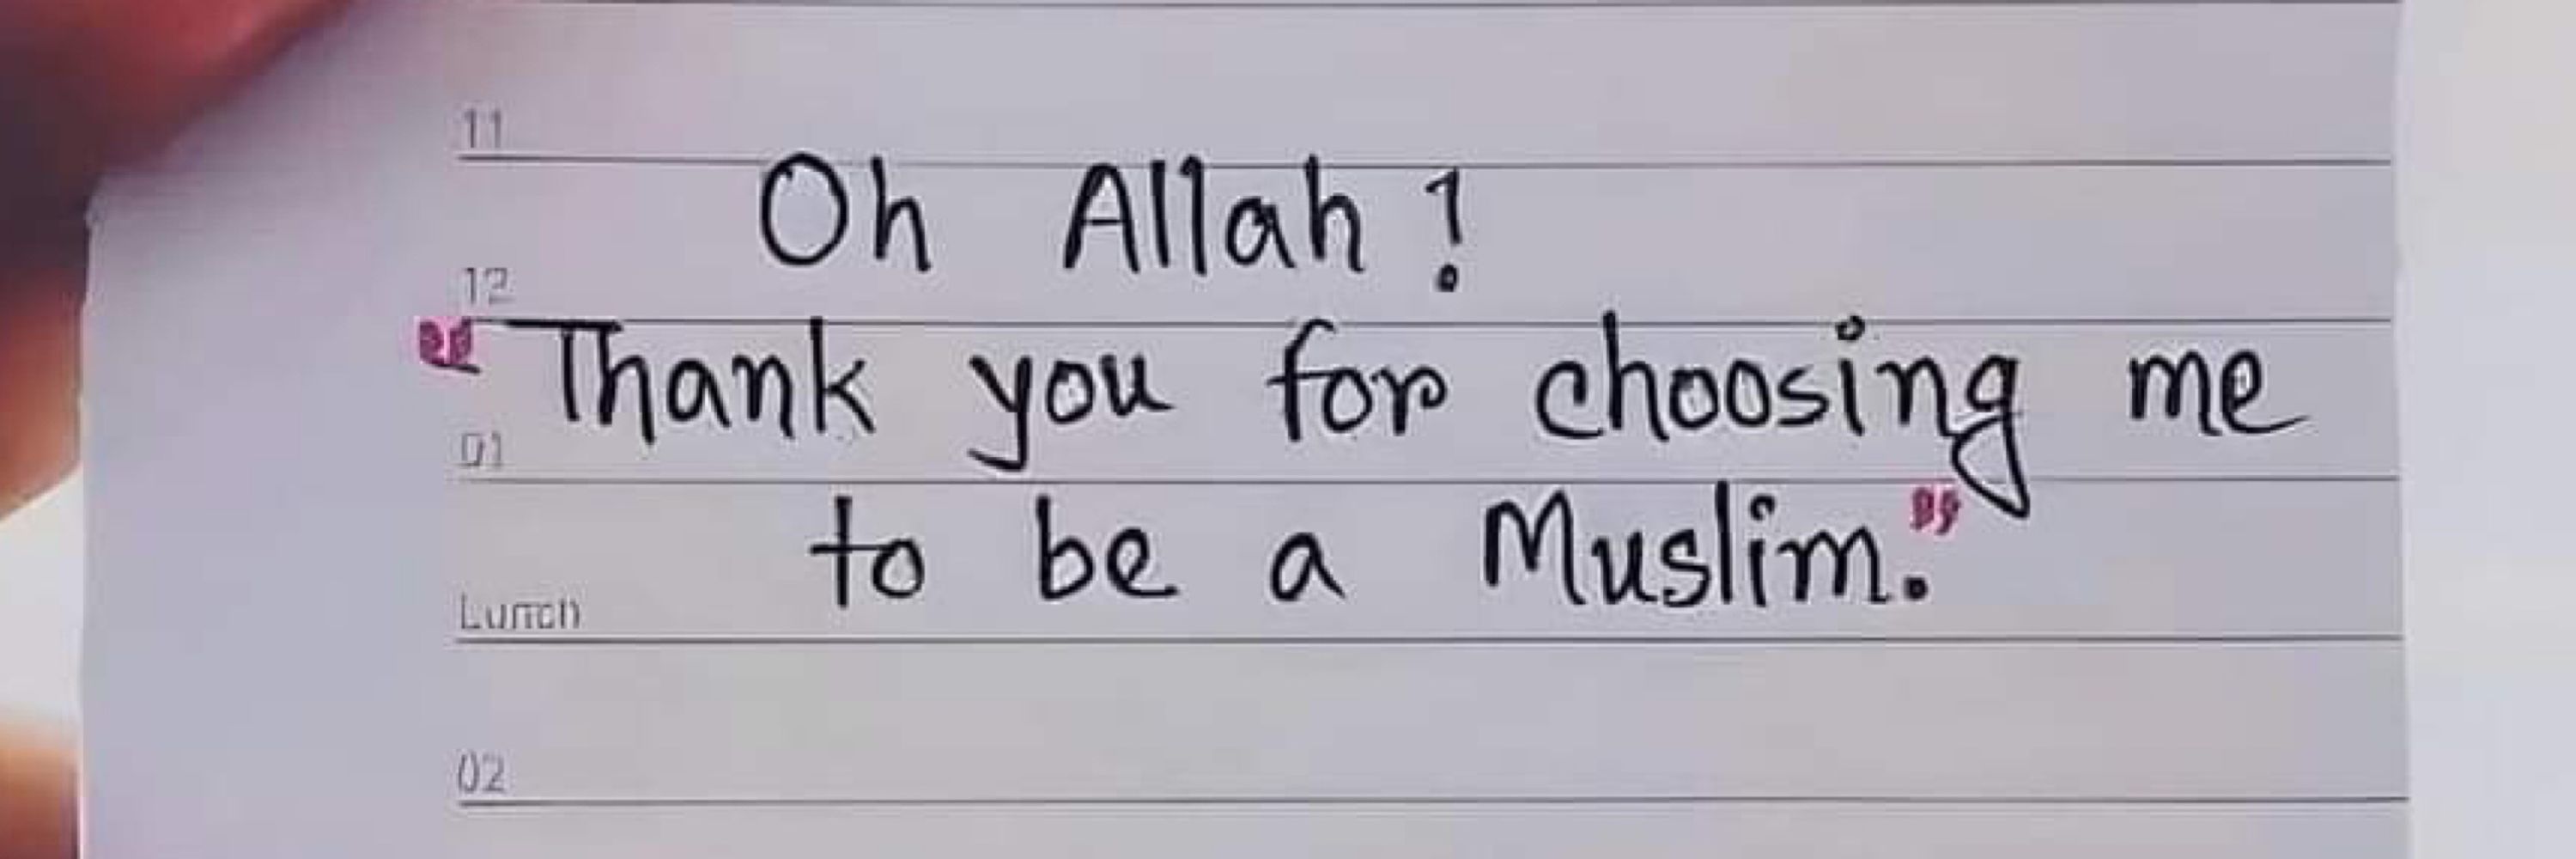 11
Oh Allah!
12
"Thank you for choosing me
01
to be a Muslim."
Lunch
02